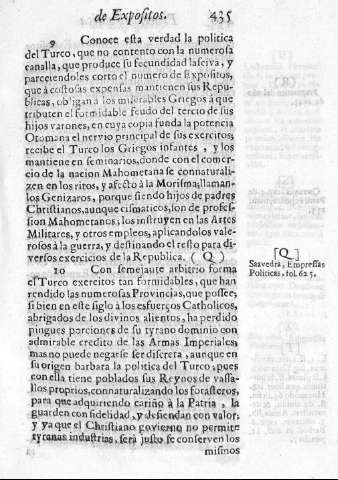 de Expositos. 435
9 Conoce esta verdad la politica
del Turco, que no contento con la numerosa
canalla, que produce su fecundidad lasciva, y
pareciendoles corto el numero de Expositos,
que à costosas expensas mantienen sus Repu-
blicas, obligan à los miserables Griegos à que
tributen el formidable feudo del tercio de sus
hijos varones, en cuya copia funda la potencia
Otomana el nervio principal de sus exercitos;
recibe el Turco los Griegos infantes, y los
mantiene en seminarios, donde con el comer-
cio de la nacion Mahometana se connaturali-
zen en los ritos, y afecto à la Morisma; llaman-
los Genizaros, porque siendo hijos de padres
Christianos, aunque cismaticos, son de profes-
sion Mahometanos; los instruyen en las Artes
Militares, y otros empleos, aplicandolos vale-
rosos à la guerra, y destinando el resto para di-
versos exercicios de la Republica. (Q)
[Q]
Saavedra, Empressas
Politicas, fol. 625.
10 Con semejante arbitrio forma
el Turco exercitos tan formidables, que han
rendido las numerosas Provincias, que possee,
si bien en este siglo à los esfuerços Catholicos,
abrigados de los divinos alientos, ha perdido
pingues porciones de su tyrano dominio con
admirable credito de las Armas Imperiales;
mas no puede negarse ser discreta, aunque en
su origen barbara la politica del Turco, pues
con ella tiene poblados sus Reynos de vassa-
llos proprios, connaturalizando los forasteros,
para que adquiriendo cariño à la Patria, la
guarden con fidelidad, y defiendan con valor;
y ya que el Christiano govierno no permite
tyranas industrias, serà justo se conserven los
mismos